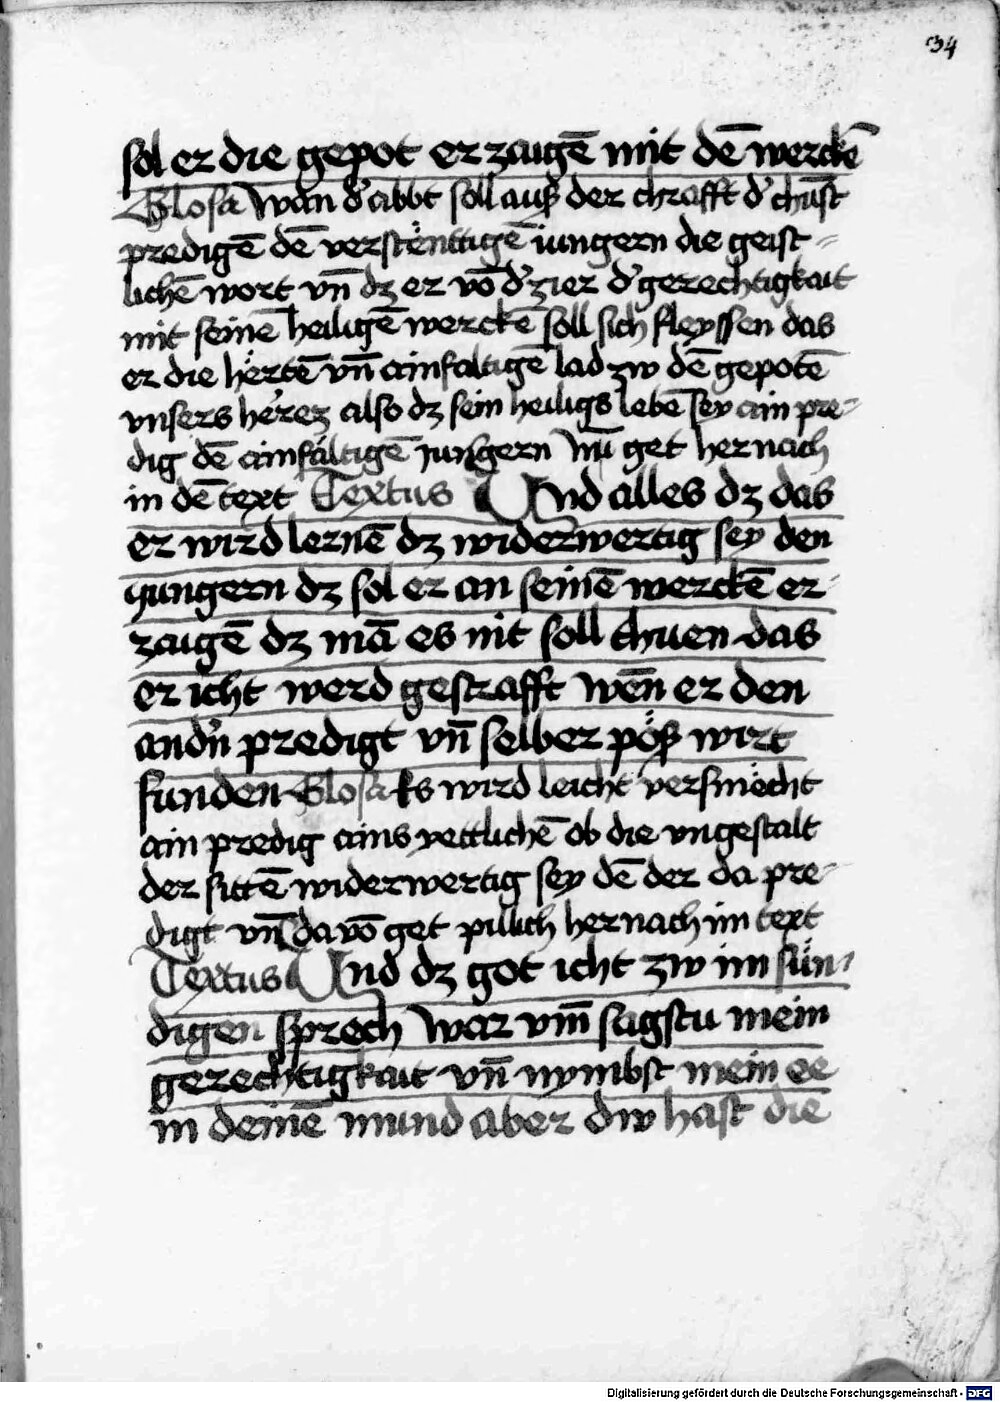 34
sol er die gepot erzaigē mit dē werckē
Glosa Wan d' abbt soll auß der chrafft d' chūst
predigē dē verstënttigē iungern die geist=
lichē wort vn̄ dz er vō d' zier d' gerechtigkait
mit seinē heiligē werckē soll sich fleyssen das
er die hërtē vn̄ ainfaltigē lad zw dē gepotē
vnsers herez also dz sein heiligs lebē sey ain pre=
dig dē ainfältigē jungern Nu get hernach
in dē text Textus Und alles dz das
er wird lernē dz widerwertig sey den
yungern dz sol er an seinē werckē er=
zaigē dz mā es nit soll thuen das
er icht werd gestrafft wen̄ er den
andn̄ predigt vn̄ selber pöß wirt
funden Glosa Es wird leicht versmëcht
ain predig ains yettlichē ob die vngestalt
der sittē widerwertig sey dē der da pre=
digt vn̄ da vō get pillich hernach im text
Textus Und dz got icht zw im sün=
digen sprech War vm̄ sagstu mein
gerechtigkait vn̄ nymbst mein ee
in deinē mund aber dw hast die
Digitalisierung gefördert durch die Deutsche Forschungsgemeinschaft - DFG